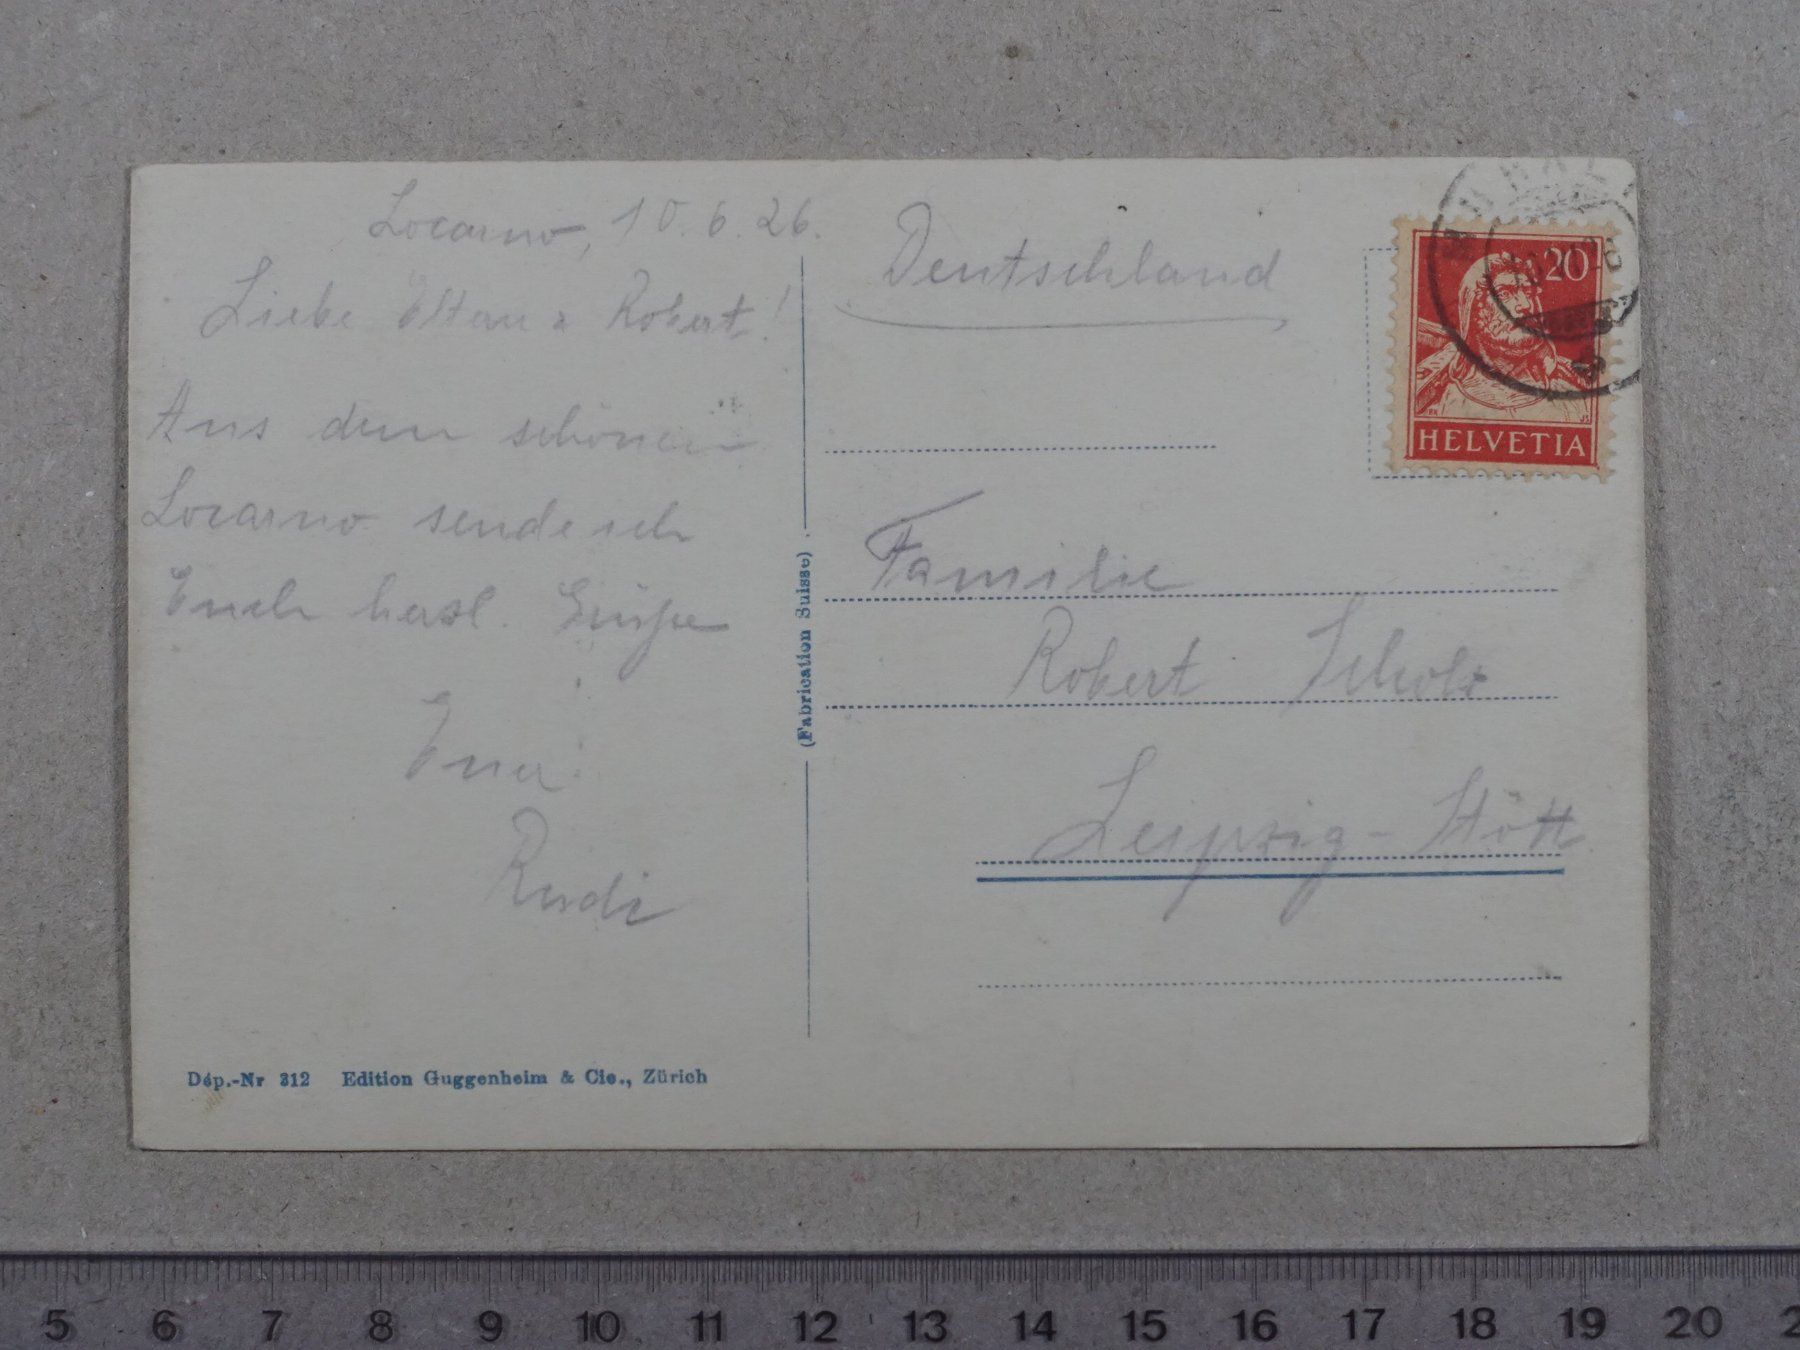 Locarno, 10.6.26.
Liebe Eltern & Robert!
Aus dem schönen
Locarno sende ich
Euch herzl. Grüsse
Euer
Rudi
Dép.-Nr 312 Edition Guggenheim & Cie., Zürich
(Fabrication Suisse).
Deutschland
20
HELVETIA
Familie
Robert Scholz
Leipzig-Stött
5 6 7 8 9 10 11 12 13 14 15 16 17 18 19 20